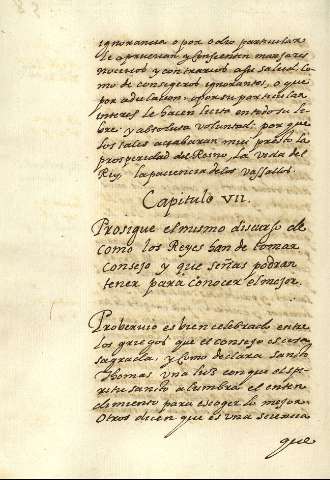 ignorancia o por odio particular
le aprueuan y consienten manjares
nociuos y contrarios a su salud, co
mo de consegeros ignorantes, o que
por adulacion, o por su particular
interes le hacen licito en todo su li
bre y absoluta Voluntad, por que
los tales acabaran mui presto la
prosperidad del Reino, la vida del
Rey, la paciencia de los Vassallos.
Capitulo VII.
Prosigue el mismo discurso de
como los Reyes han de tomar
Consejo y que señas podran
tener para conocer el mejor.
Proberuio es bien celebrado entre
los griegos que el consejo es cosa
sagrada, y como declara Santo
Thomas Vna luz con que el spi
ritu santo alumbra el enten
dimiento para escoger lo mejor.
Otros dicen que es vna sciencia
que